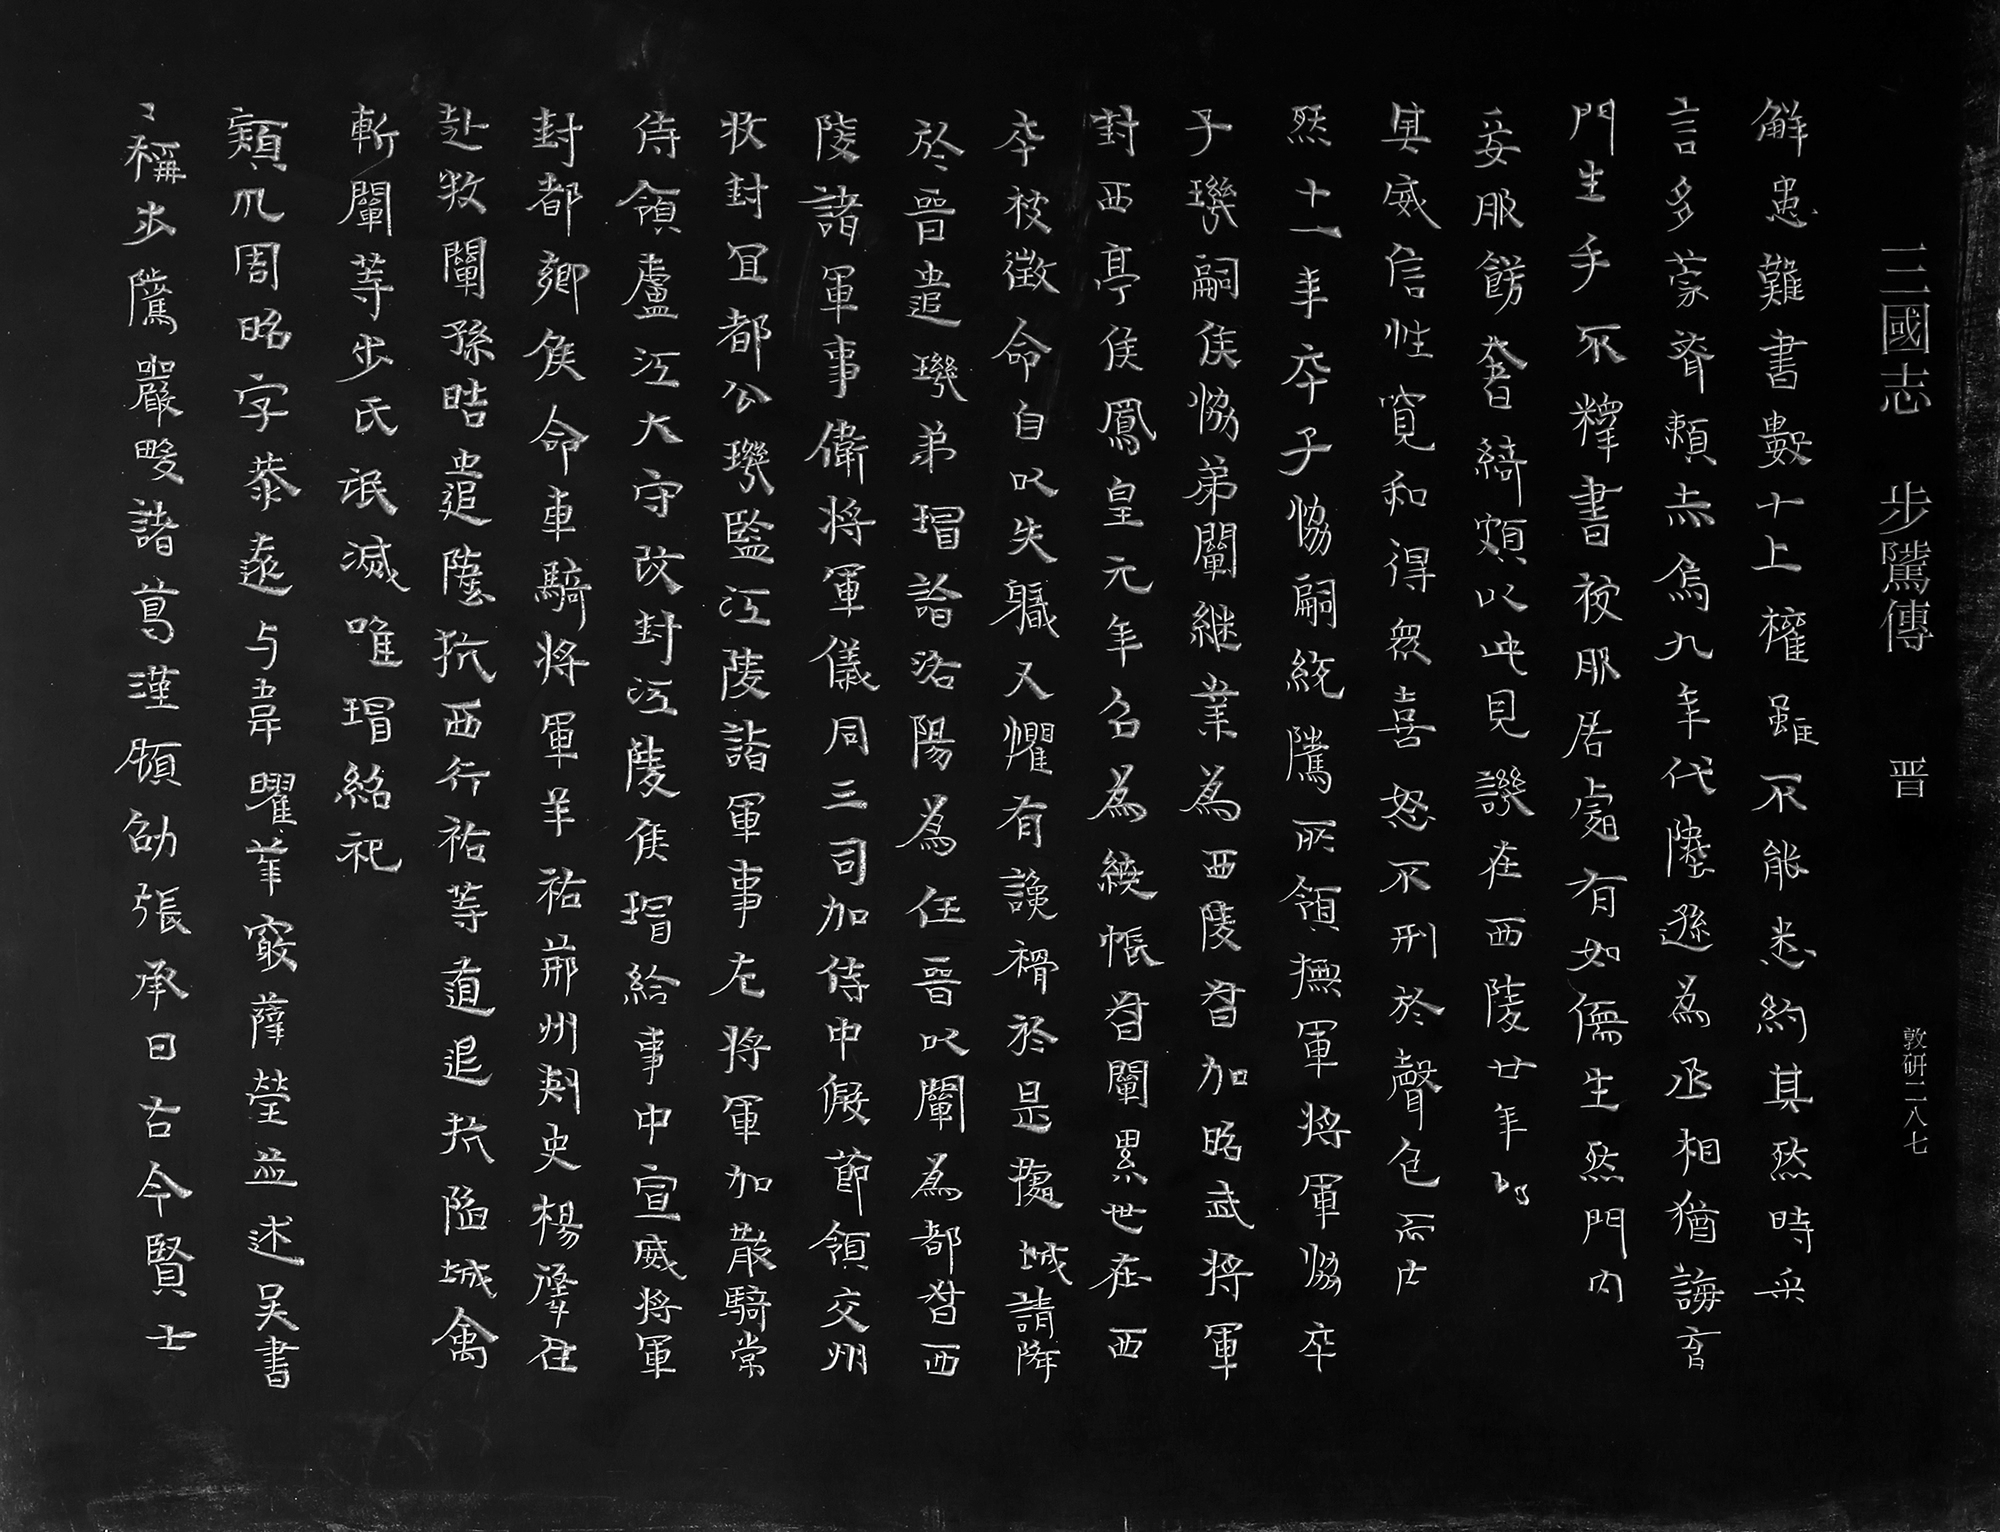 三國志　步騭傳　晋　敦研二八七
解患難書數十上權雖不能悉納其然時采
言多蒙齊賴赤烏九年代陸遜為丞相猶誨育
門生手不釋書被服居處有如儒生然門内
妾服飾奢綺頗以此見譏在西陵廿年
其威信性寬和得衆喜怒不刑於聲色而亡
然十一年卒子協嗣統騭所領撫軍將軍協卒
子璣嗣侯協弟闡継業為西陵督加昭武將軍
封西亭侯鳳皇元年召為繞帳督闡累世在西
卒被徵命自以失職又懼有讒禍於是據城請降
於晉遣璣弟璿詣洛陽為任晉以闡為都督西
陵諸軍事衛將軍儀同三司加侍中假節領交州
牧封宜都公璣監江陵諸軍事左將軍加散騎常
侍領廬江太守改封江陵侯璿給事中宣威將軍
封都鄉侯命車騎將軍羊祜荊州刺史楊肇往
赴救闡孫晧遣陸抗西行祜等遁退抗陷城禽
斬闡等步氏泯滅唯璿紹祀
潁川周昭字恭遠与韋曜華覈薛瑩並述吴書
〻稱步騭嚴畯諸葛瑾顧劭張承曰古今賢士